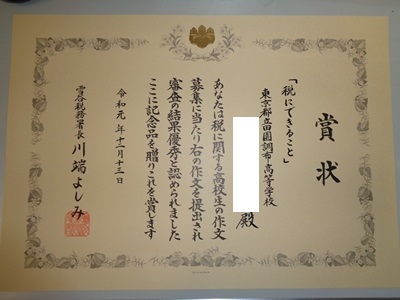 賞状
「税にできること」
東京都立田園調布高等学校
殿
あなたは税に関する高校生の作文
募集に当たり右の作文を提出され
審査の結果優秀と認められました
ここに記念品を贈りこれを賞します
令和元年十一月十三日
雪谷税務署長 川端よしみ